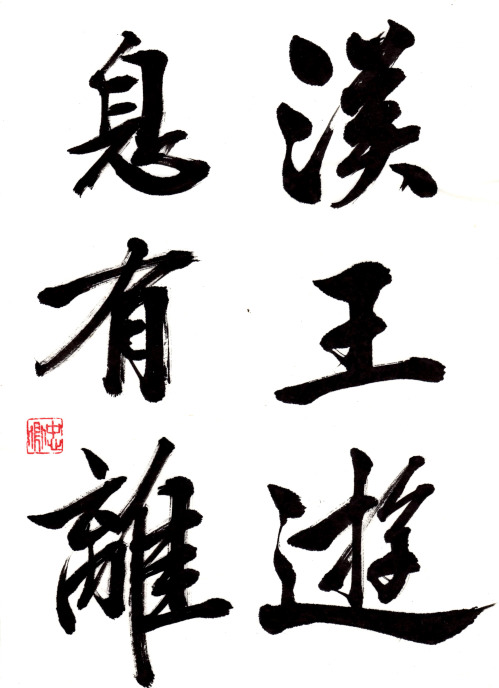 漢王遊
息有離